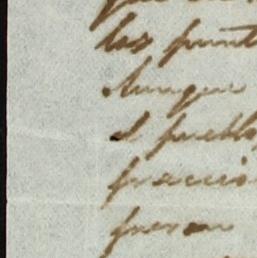 los punt
Aunque
el pueblo
fraccio
fueron